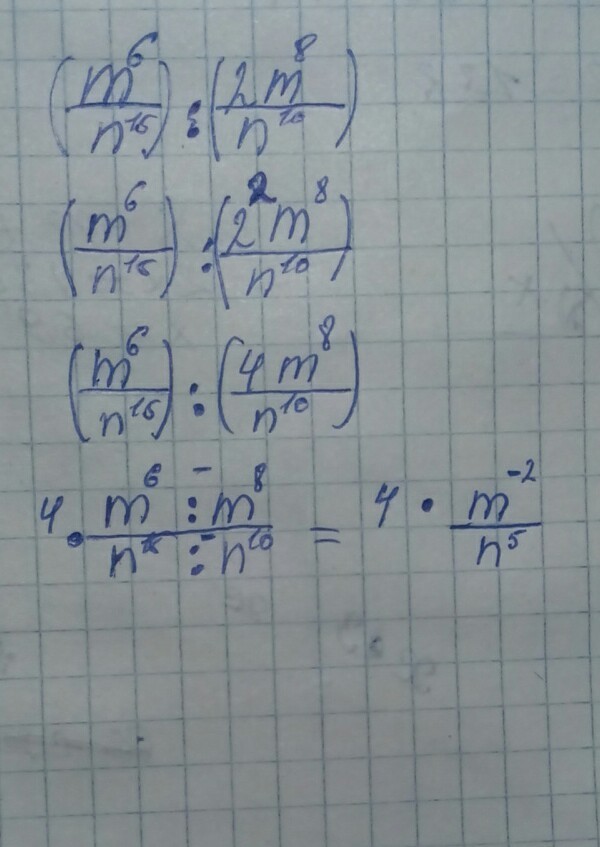 (m⁶/n¹⁵) : (2m⁸/n¹⁰)
(m⁶/n¹⁵) : (2²m⁸/n¹⁰)
(m⁶/n¹⁵) : (4m⁸/n¹⁰)
4 · (m⁶ ⁻ : m⁸)/(n¹⁵ ⁻ : n¹⁰) = 4 · m⁻²/n⁵